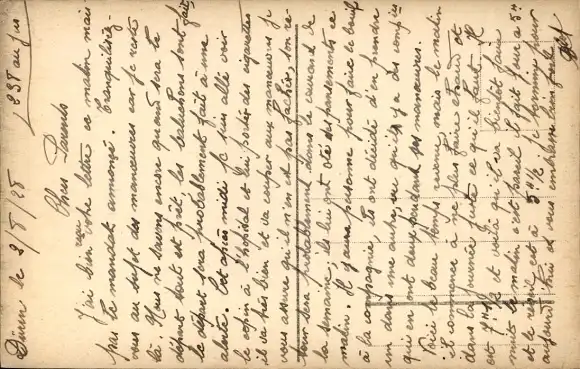 Düren le 3/8/25 / 238 au jus
Chers Parents
J'ai bien reçu votre lettre ce matin mais
pas le mandat annoncé. Tranquilisez-
vous au sujet des manœuvres car je reste
là. Nous ne savons encore quand sera le
départ tout est prêt les ballots sont fait
le départ sera probablement fait à une
alerte. Cet après midi je suis allé voir
le copin à l'hopital et lui porter des cigarettes
il va très bien et va couper aux manœuvres je
vous assure qu'il n'en est pas faché, son re-
tour sera probablement dans le courant de
la semaine, ils lui ont ôté ses pansements ce
matin. Il y aura personne pour faire le bouf
à la compagnie ils ont décidé d'en prendre
un dans une autre vu qu'il y a des compies
qu'en ont deux pendant ses manœuvres.
Voici le beau temps revenu mais le matin
il commence à ne plus faire chaud et
dans la journée juste ce qu'il faut. Il
est 7H½ et voilà qu'il va bientôt faire
nuit le matin c'est pareil il fait jour a 5H
et le réveil est à 5H½. Je termine pour
aujourd'hui et vous embrasse bien fort